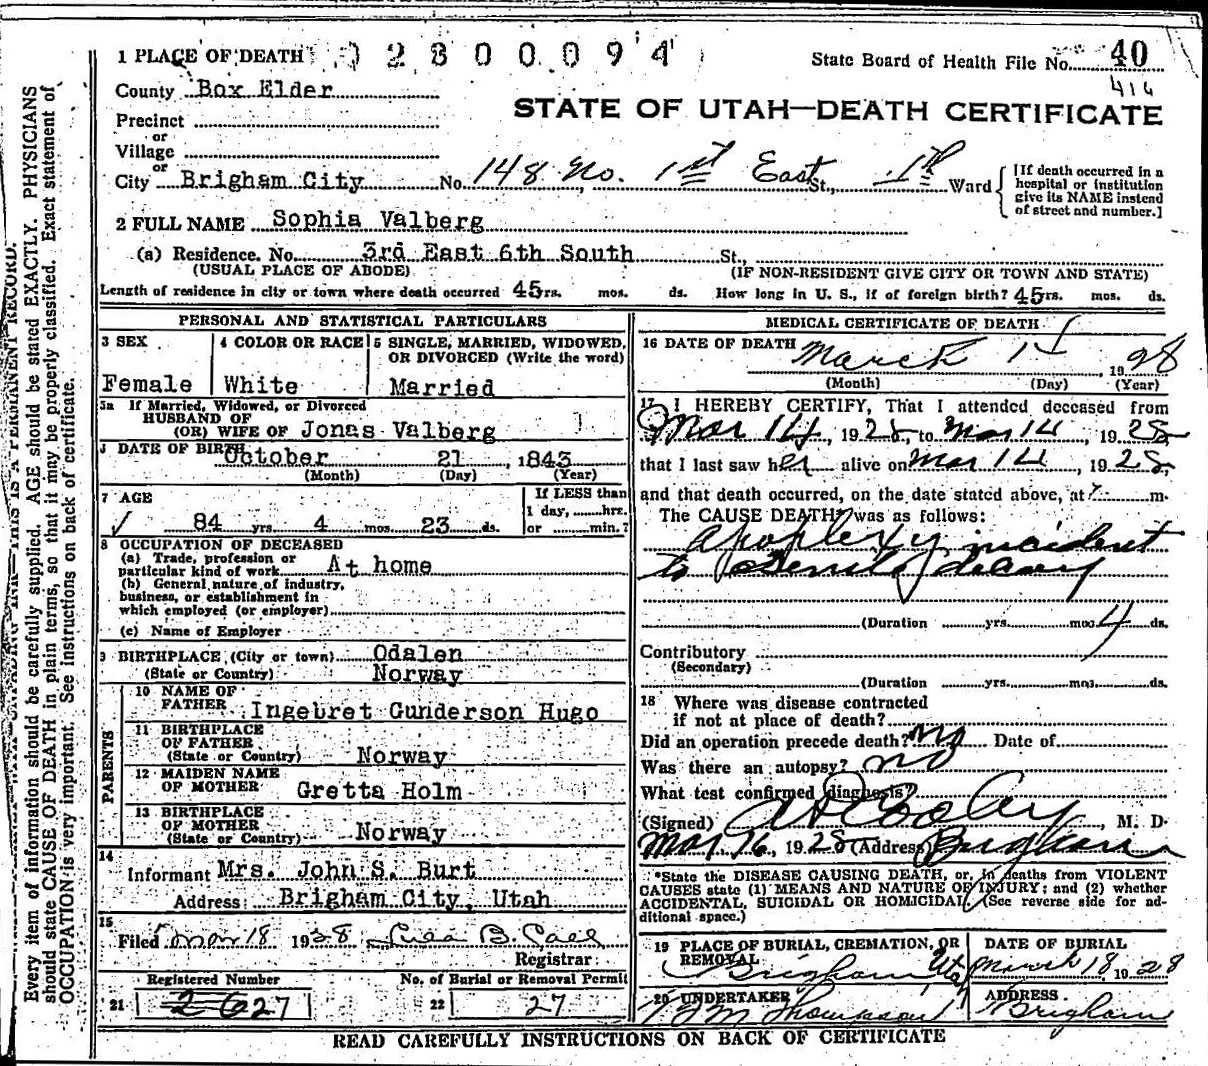 1 PLACE OF DEATH 02800094
State Board of Health File No. 40
416
County Box Elder
STATE OF UTAH—DEATH CERTIFICATE
Precinct
or
Village
or
City Brigham City No. 148 No. 1st East St., 1st Ward
[If death occurred in a hospital or institution give its NAME instead of street and number.]
2 FULL NAME Sophia Valberg
(a) Residence. No. 3rd East 6th South St.,
(USUAL PLACE OF ABODE) (IF NON-RESIDENT GIVE CITY OR TOWN AND STATE)
Length of residence in city or town where death occurred 45 yrs. mos. ds. How long in U. S., if of foreign birth? 45 yrs. mos. ds.
PERSONAL AND STATISTICAL PARTICULARS
3 SEX
Female
4 COLOR OR RACE
White
5 SINGLE, MARRIED, WIDOWED, OR DIVORCED (Write the word)
Married
5a If Married, Widowed, or Divorced
HUSBAND OF
(OR) WIFE OF Jonas Valberg
DATE OF BIRTH October 21, 1843
(Month) (Day) (Year)
7 AGE
84 yrs. 4 mos. 23 ds.
If LESS than
1 day, hrs.
or min.?
8 OCCUPATION OF DECEASED
(a) Trade, profession or
particular kind of work At home
(b) General nature of industry,
business, or establishment in
which employed (or employer)
(c) Name of Employer
9 BIRTHPLACE (City or town) Odalen
(State or Country) Norway
PARENTS
10 NAME OF
FATHER Ingebret Gunderson Hugo
11 BIRTHPLACE
OF FATHER
(State or Country) Norway
12 MAIDEN NAME
OF MOTHER Gretta Holm
13 BIRTHPLACE
OF MOTHER
(State or Country) Norway
14
Informant Mrs. John S. Burt
Address: Brigham City, Utah
15
Filed Mar 18 1928
Registrar
Registered Number
21 26 27
No. of Burial or Removal Permit
22 27
MEDICAL CERTIFICATE OF DEATH
16 DATE OF DEATH
March 14, 1928
(Month) (Day) (Year)
17 I HEREBY CERTIFY, That I attended deceased from
Mar 14, 1928, to Mar 14, 1928
that I last saw her alive on Mar 14, 1928,
and that death occurred, on the date stated above, at 7 m.
The CAUSE DEATH* was as follows:
Apoplexy incident
to Senile decay
(Duration yrs. mos. 4 ds.
Contributory
(Secondary)
(Duration yrs. mos. ds.
18 Where was disease contracted
if not at place of death?
Did an operation precede death? no Date of
Was there an autopsy? no
What test confirmed diagnosis?
(Signed) A D Cooley, M. D.
Mar 16, 1928 (Address) Brigham
*State the DISEASE CAUSING DEATH, or, in deaths from VIOLENT
CAUSES state (1) MEANS AND NATURE OF INJURY; and (2) whether
ACCIDENTAL, SUICIDAL OR HOMICIDAL. (See reverse side for ad-
ditional space.)
19 PLACE OF BURIAL, CREMATION, OR
REMOVAL
Brigham Utah
DATE OF BURIAL
March 18 1928
20 UNDERTAKER
Thompson
ADDRESS
Brigham
READ CAREFULLY INSTRUCTIONS ON BACK OF CERTIFICATE
THIS IS A PERMANENT RECORD.
Every item of information should be carefully supplied. AGE should be stated EXACTLY. PHYSICIANS
should state CAUSE OF DEATH in plain terms, so that it may be properly classified. Exact statement of
OCCUPATION is very important. See instructions on back of certificate.